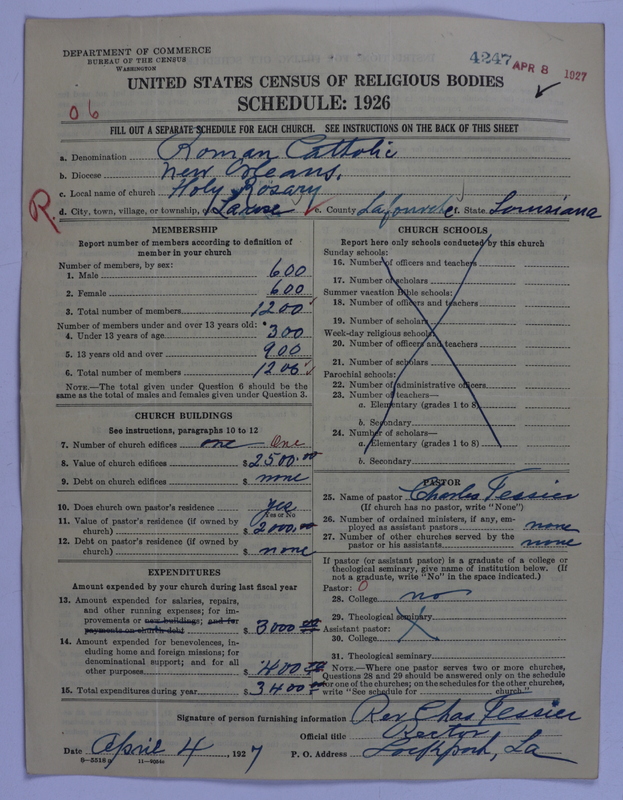 DEPARTMENT OF COMMERCE
BUREAU OF THE CENSUS
WASHINGTON
4247 APR 8 1927
UNITED STATES CENSUS OF RELIGIOUS BODIES
SCHEDULE: 1926
06
FILL OUT A SEPARATE SCHEDULE FOR EACH CHURCH. SEE INSTRUCTIONS ON THE BACK OF THIS SHEET
a. Denomination Roman Catholic
b. Diocese New Orleans.
c. Local name of church Holy Rosary
R. d. City, town, village, or township, Larose e. County Lafourche f. State Louisiana
MEMBERSHIP
Report number of members according to definition of
member in your church
Number of members, by sex:
1. Male 600
2. Female 600
3. Total number of members 1200
Number of members under and over 13 years old:
4. Under 13 years of age 300
5. 13 years old and over 900
6. Total number of members 1200
NOTE.—The total given under Question 6 should be the
same as the total of males and females given under Question 3.
CHURCH BUILDINGS
See instructions, paragraphs 10 to 12
7. Number of church edifices one One
8. Value of church edifices $2500.00
9. Debt on church edifices $ none
10. Does church own pastor's residence yes
Yes or No
11. Value of pastor's residence (if owned by
church) $2000.00
12. Debt on pastor's residence (if owned by
church) $ none
EXPENDITURES
Amount expended by your church during last fiscal year
13. Amount expended for salaries, repairs,
and other running expenses; for im-
provements or new buildings; and for
payments on church debt $3000 00
14. Amount expended for benevolences, in-
cluding home and foreign missions; for
denominational support; and for all
other purposes $400 00
15. Total expenditures during year $3400 00
CHURCH SCHOOLS
Report here only schools conducted by this church
Sunday schools:
16. Number of officers and teachers
17. Number of scholars
Summer vacation Bible schools:
18. Number of officers and teachers
19. Number of scholars
Week-day religious schools:
20. Number of officers and teachers
21. Number of scholars
Parochial schools:
22. Number of administrative officers
23. Number of teachers—
a. Elementary (grades 1 to 8)
b. Secondary
24. Number of scholars—
a. Elementary (grades 1 to 8)
b. Secondary
PASTOR
25. Name of pastor Charles Tessier
(If church has no pastor, write "None")
26. Number of ordained ministers, if any, em-
ployed as assistant pastors none
27. Number of other churches served by the
pastor or his assistants none
If pastor (or assistant pastor) is a graduate of a college or
theological seminary, give name of institution below. (If
not a graduate, write "No" in the space indicated.)
Pastor: 0
28. College no
29. Theological seminary
Assistant pastor:
30. College
31. Theological seminary
NOTE.—Where one pastor serves two or more churches,
Questions 28 and 29 should be answered only on the schedule
for one of the churches; on the schedules for the other churches,
write "See schedule for church."
Signature of person furnishing information Rev Chas Tessier
Official title Rector
Date April 4, 1927 P. O. Address Lockport, La
8—5518